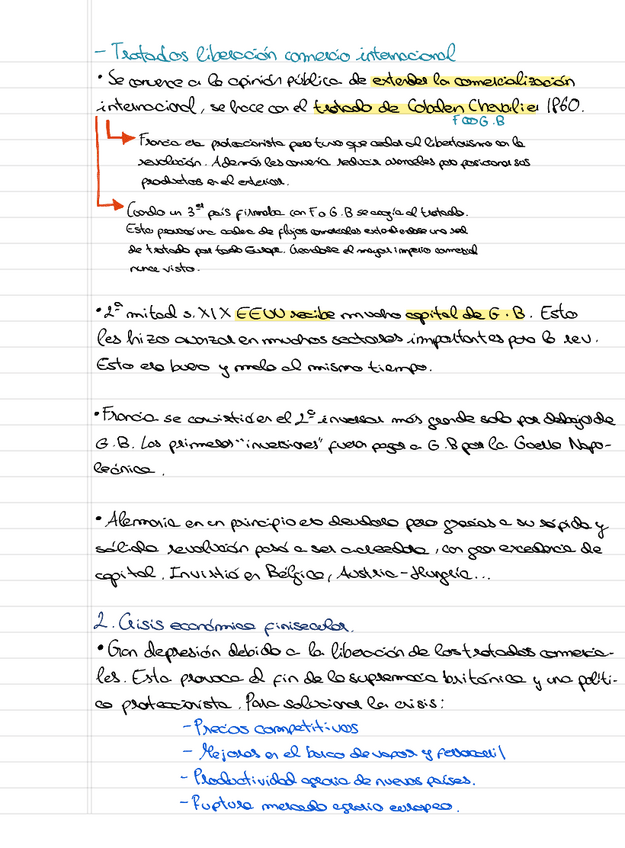 - Tratados liberación comercio internacional
• Se convence a la opinión pública de extender la comercialización
internacional, se hace con el tratado de Cobden Chevalier 1860.
F G.B
Francia era proteccionista pero tuvo que ceder al libertarismo con la
revolución. Además les convenía reducir aranceles para posicionar sus
productos en el exterior.
Cuando un 3er país firmaba con F o G.B se acogía al tratado.
Esto provocó una cadena de flujos comerciales extendiendose una red
de tratado por toda Europa. Creandose el mayor imperio comercial
nunca visto.
• 2ª mitad s. XIX EEUU recibe mucho capital de G.B. Esto
les hizo avanzar en muchos sectores importantes para la rev.
Esto era bueno y malo al mismo tiempo.
• Francia se convirtió en el 2º inversor más grande solo por debajo de
G.B. Las primeras "inversiones" fueron pagar a G.B por la Guerra Napo-
leónica.
• Alemania en un principio era deudora pero gracias a su rápida y
sólida revolución pasó a ser acreedora, con gran excedencia de
capital. Invistió en Bélgica, Austria-Hungría...
2. Crisis económica finisecular.
• Gran depresión debido a la liberación de los tratados comercia-
les. Esto provoca el fin de la supremacía británica y una políti-
ca proteccionista. Para solucionar la crisis:
- Precios competitivos
- Mejoras en el barco de vapor y ferrocarril
- Productividad agraria de nuevos países.
- Ruptura mercado agrario europeo.